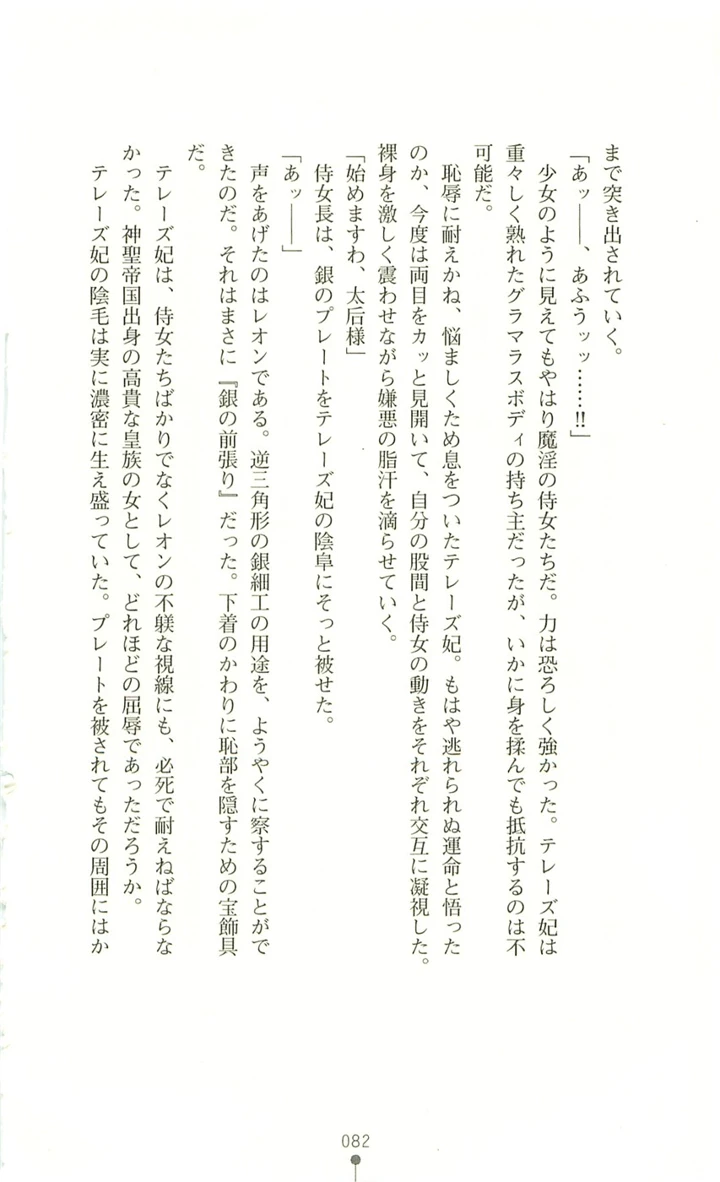 まで突き出されていく。
「あッ――、あふうッッ……!!」
少女のように見えてもやはり魔淫の侍女たちだ。力は恐ろしく強かった。テレーズ妃は
重々しく熟れたグラマラスボディの持ち主だったが、いかに身を揉んでも抵抗するのは不
可能だ。
恥辱に耐えかね、悩ましくため息をついたテレーズ妃。もはや逃れられぬ運命と悟った
のか、今度は両目をカッと見開いて、自分の股間と侍女の動きをそれぞれ交互に凝視した。
裸身を激しく震わせながら嫌悪の脂汗を滴らせていく。
「始めますわ、太后様」
侍女長は、銀のプレートをテレーズ妃の陰阜にそっと被せた。
「あッ――」
声をあげたのはレオンである。逆三角形の銀細工の用途を、ようやくに察することがで
きたのだ。それはまさに『銀の前張り』だった。下着のかわりに恥部を隠すための宝飾具
だ。
テレーズ妃は、侍女たちばかりでなくレオンの不躾な視線にも、必死で耐えねばならな
かった。神聖帝国出身の高貴な皇族の女として、どれほどの屈辱であっただろうか。
テレーズ妃の陰毛は実に濃密に生え盛っていた。プレートを被されてもその周囲にはか
082